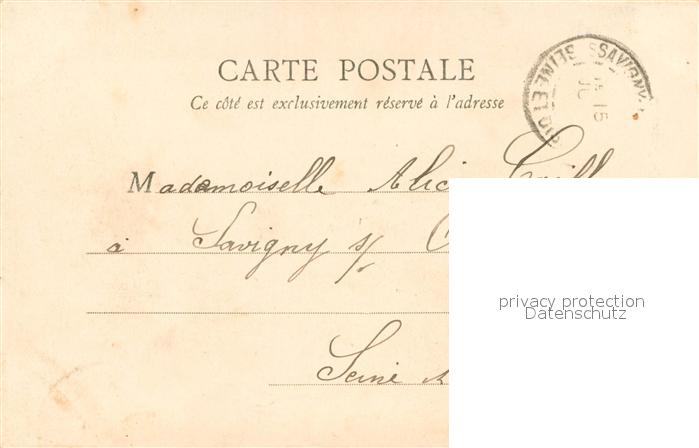 CARTE POSTALE
Ce côté est exclusivement réservé à l'adresse
SAVIGNY
SEINE ET OI
15
Mademoiselle
à Savigny s/
Seine
privacy protection
Datenschutz